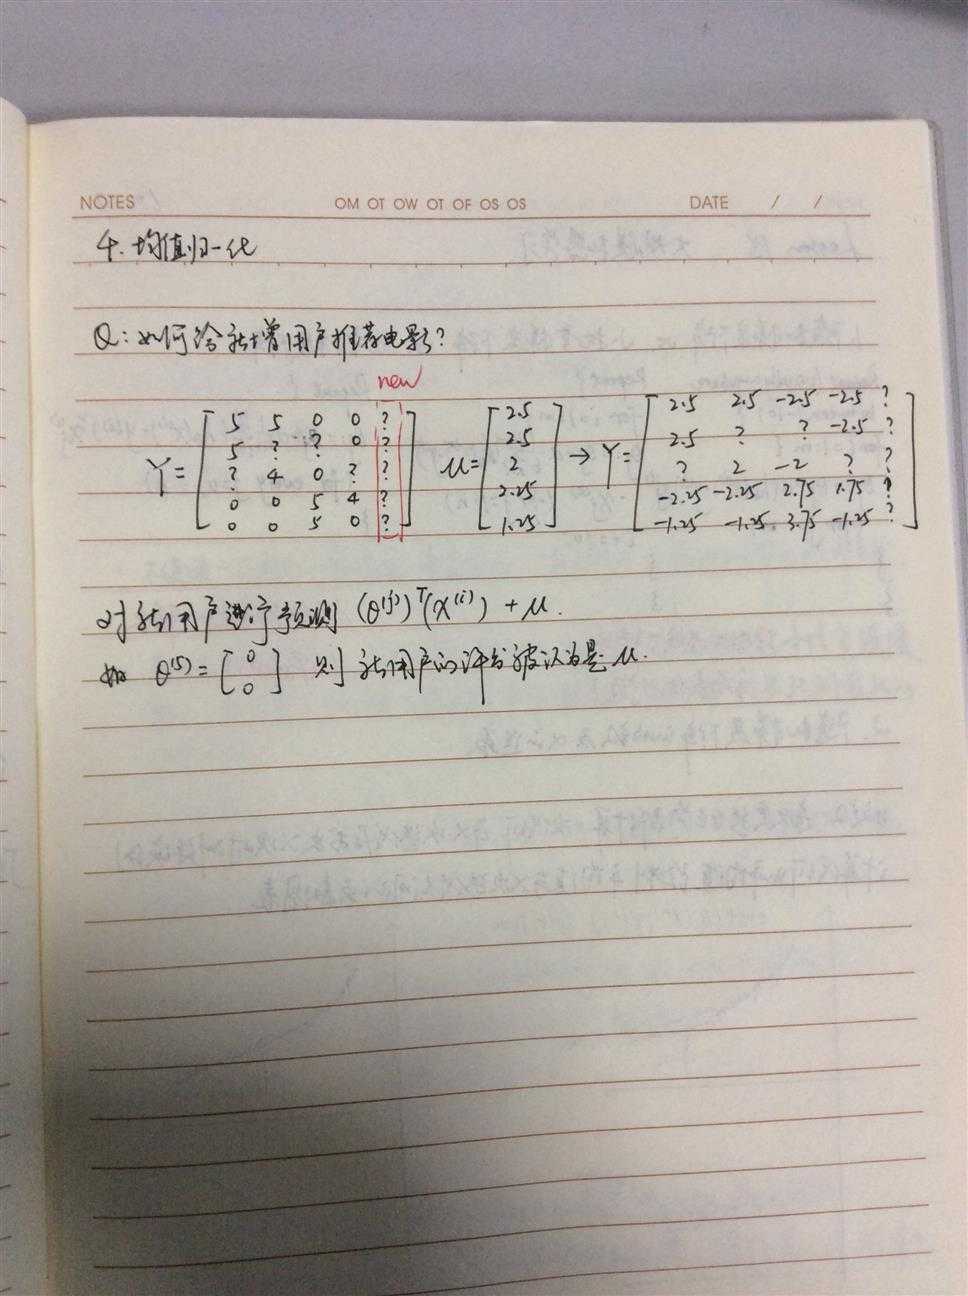 NOTES OM OT OW OT OF OS OS DATE / /
4. 均值归一化
Q: 如何给新增用户推荐电影?
new
Y = [ 5 5 0 0 ?
5 ? ? 0 ?
? 4 0 ? ?
0 0 5 4 ?
0 0 5 0 ? ]
μ = [ 2.5
2.5
2
2.25
1.25 ]
→ Y = [ 2.5 2.5 -2.5 -2.5 ?
2.5 ? ? -2.5 ?
? 2 -2 ? ?
-2.25 -2.25 2.75 1.75 ?
-1.25 -1.25 3.75 -1.25 ? ]
对新用户进行预测 (θ⁽ʲ⁾)ᵀ(x⁽ⁱ⁾) + μ.
如 θ⁽⁵⁾ = [ 0 0 ] 则 新用户的评分被认为是 μ.